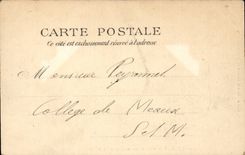 CARTE POSTALE
Ce côté est exclusivement réservé à l'adresse
Monsieur Peyronnet
Collège de Meaux
S. & M.